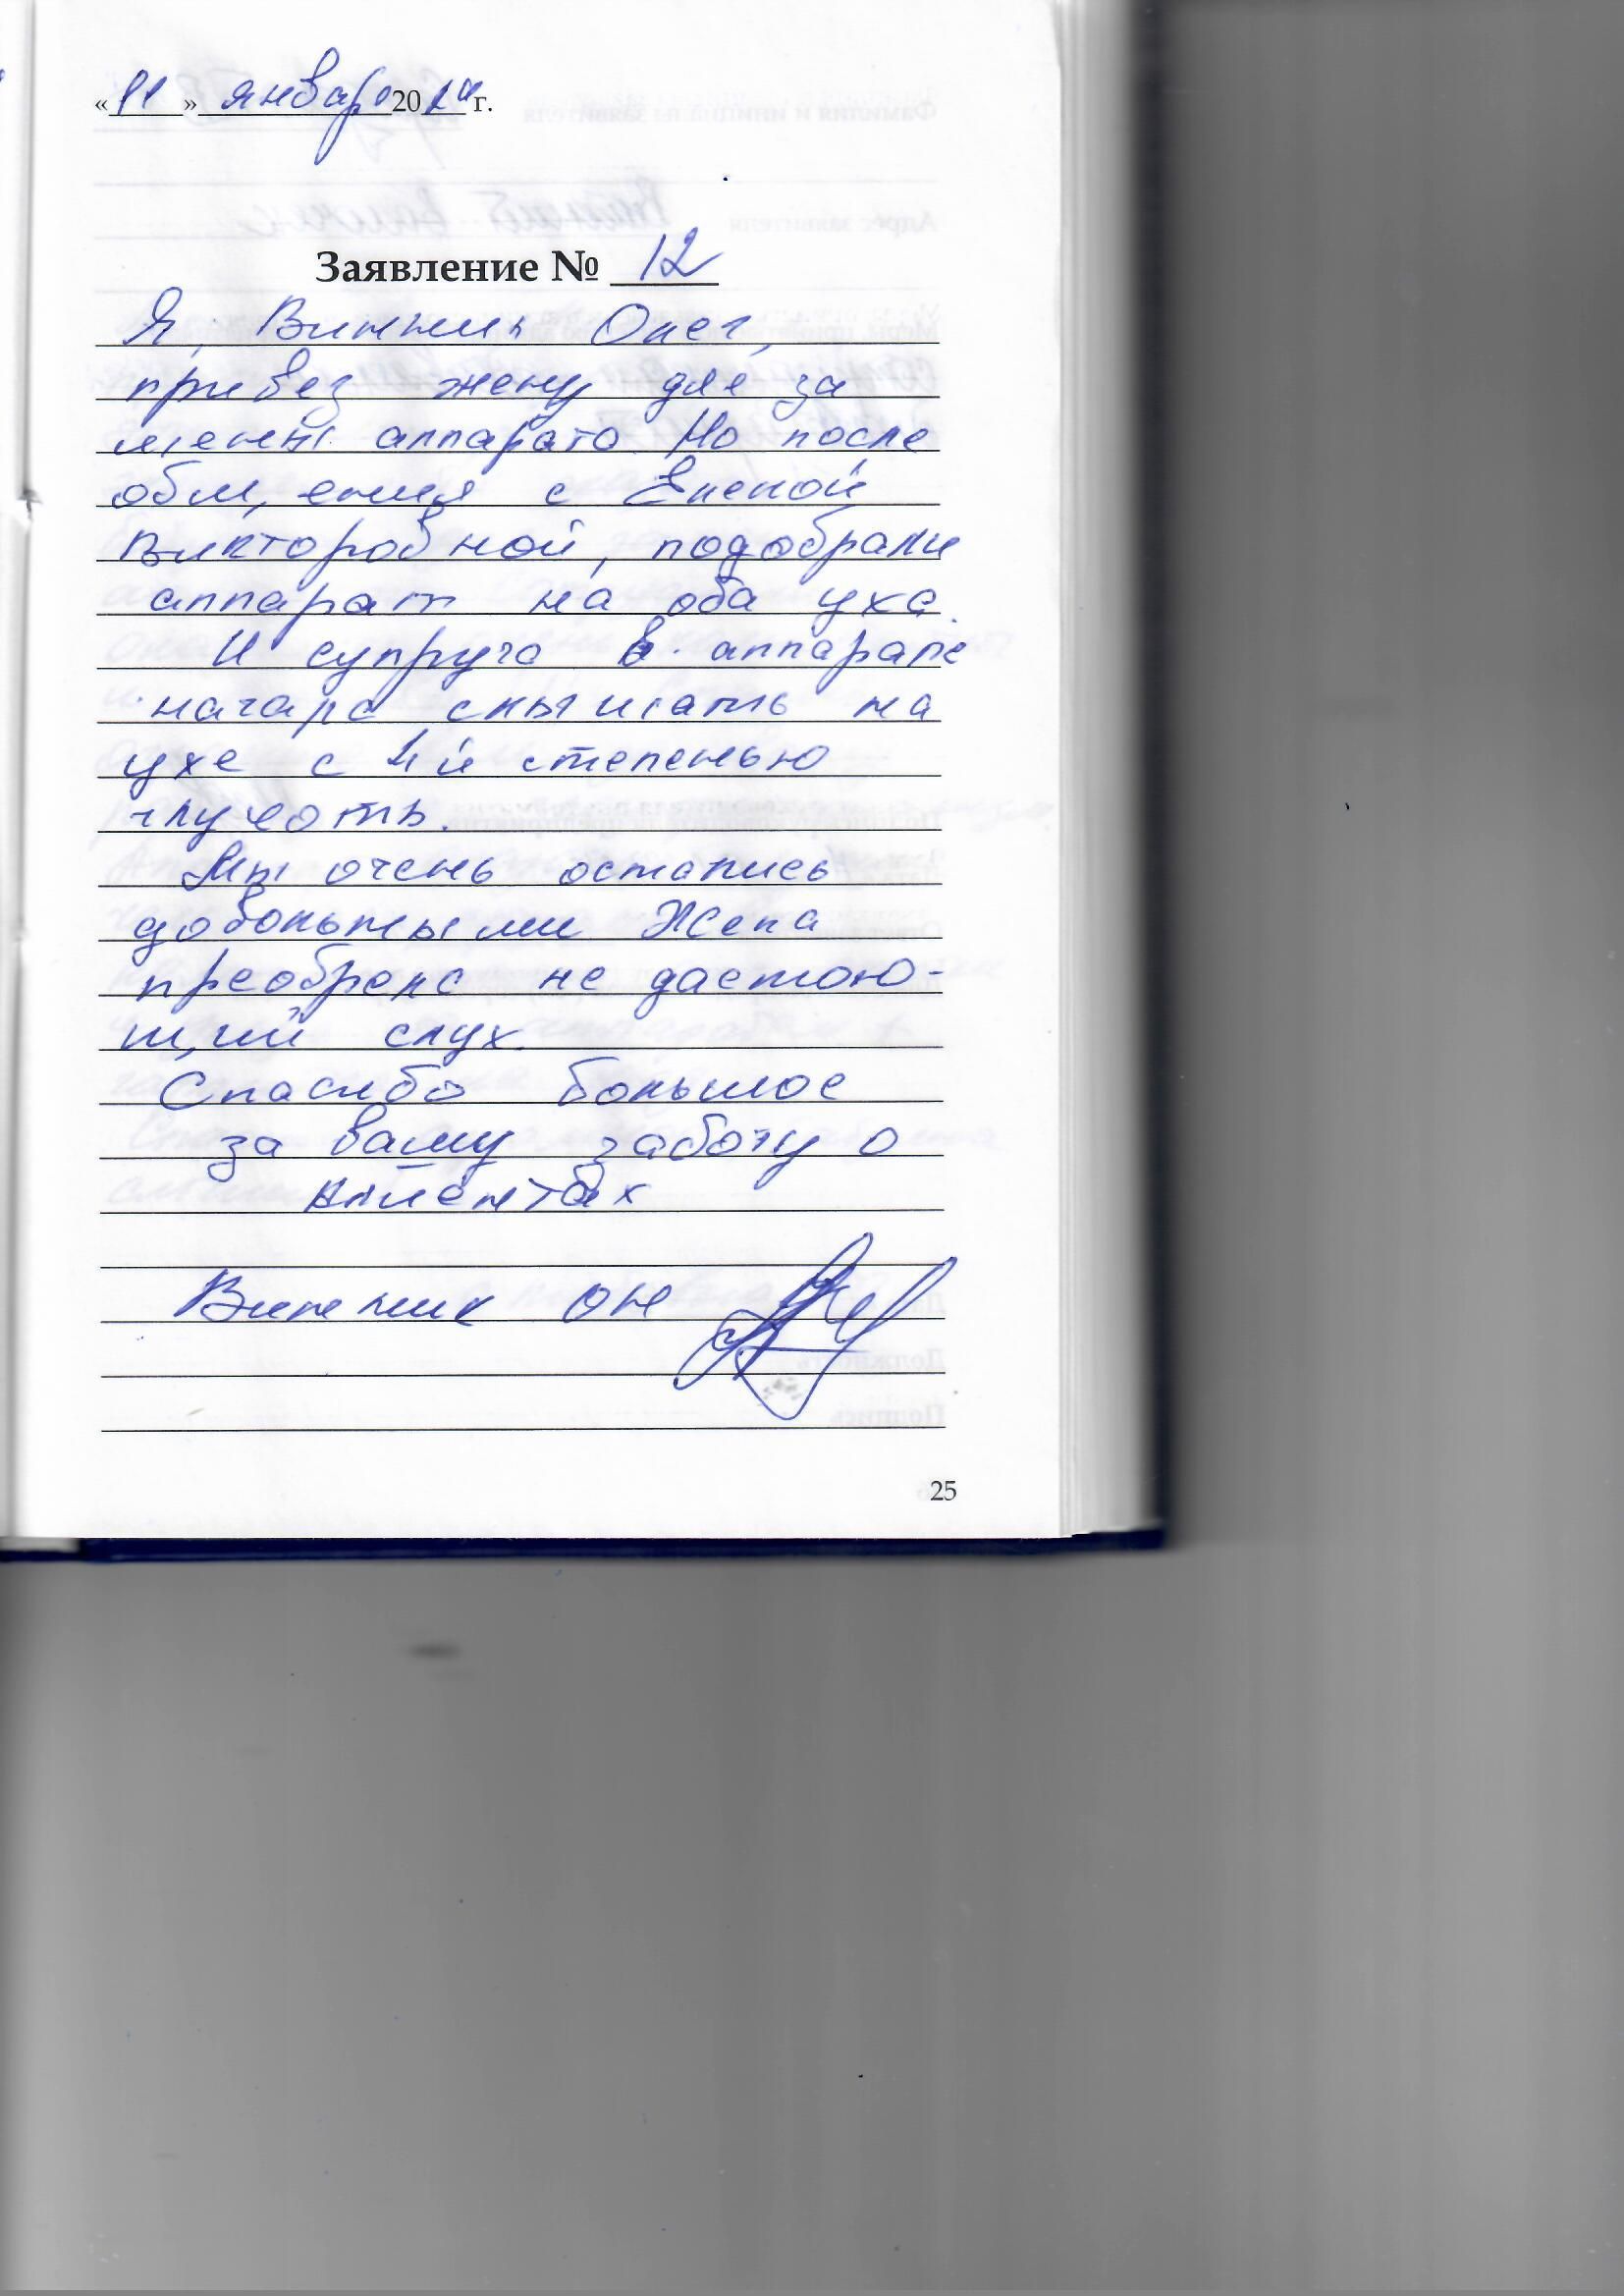 «11» января 2024 г.
Заявление № 12
Я, Винник Олег,
привез жену для за
мены аппарата Но после
общения с Еленой
Викторовной, подобрали
аппарат на оба уха.
И супруга в аппарате
начала слышать на
ухе с 4й степенью
глухоты.
Мы очень остались
довольными Жена
преобрела не дастою-
щий слух.
Спасибо большое
за вашу заботу о
клиентах
Винник ОН
25